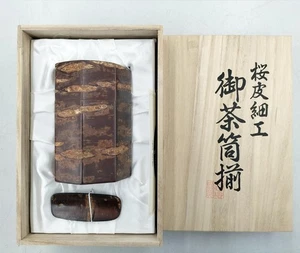 桜皮細工
御茶筒揃